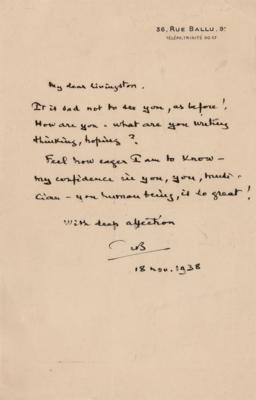 36, RUE BALLU. 9e
TÉLÉPH. TRINITÉ 90-17
My dear Livingston.
It is sad not to see you, as before!
How are you - what are you writing
thinking, hoping?
Feel how eager I am to know -
my confidence in you, you, musi-
cian - you human being, is so great!
With deep affection
NB
18 nov. 1938